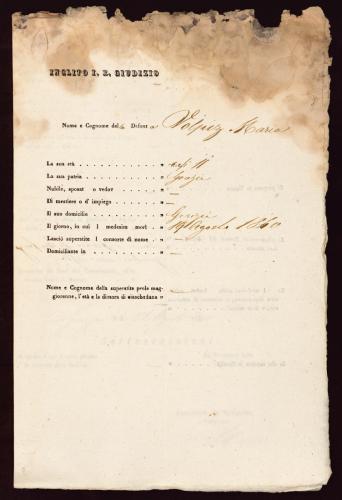 INCLITO I. R. GIUDIZIO
Nome e Cognome del a Defont a Volpez Maria
La sua età . . . . . . . . . . . . . . . "
La sua patria . . . . . . . . . . . . . " Gorizia
Nubile, sposat o vedov . . . . . . . . " —
Di mestiere o d'impiego . . . . . . . . " —
Il suo domicilio . . . . . . . . . . . . " Gorizia
Il giorno, in cui l medesim morì . . . " 19 Agosto 1840
Lasciò superstite l consorte di nome . . " —
Domiciliante in . . . . . . . . . . . . " —
Nome e Cognome della superstite prole mag-
giorenne, l'età e la dimora di ciascheduna " —